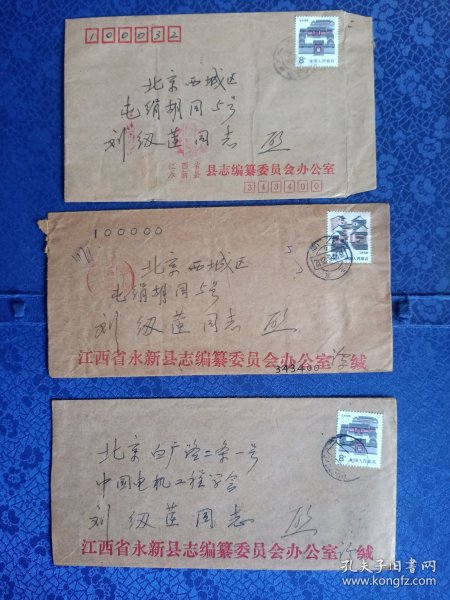 100032
8分 中国人民邮政
北京西城区
屯绢胡同5号
刘纫莲同志 启
江西省永新县 县志编纂委员会办公室
343400
100000
中国人民邮政
北京西城区
屯绢胡同5号
刘纫莲同志 启
江西省永新县志编纂委员会办公室 缄
343400
8分 中国人民邮政
北京白广路二条一号
中国电机工程学会
刘纫莲同志 启
江西省永新县志编纂委员会办公室 缄
孔夫子旧书网